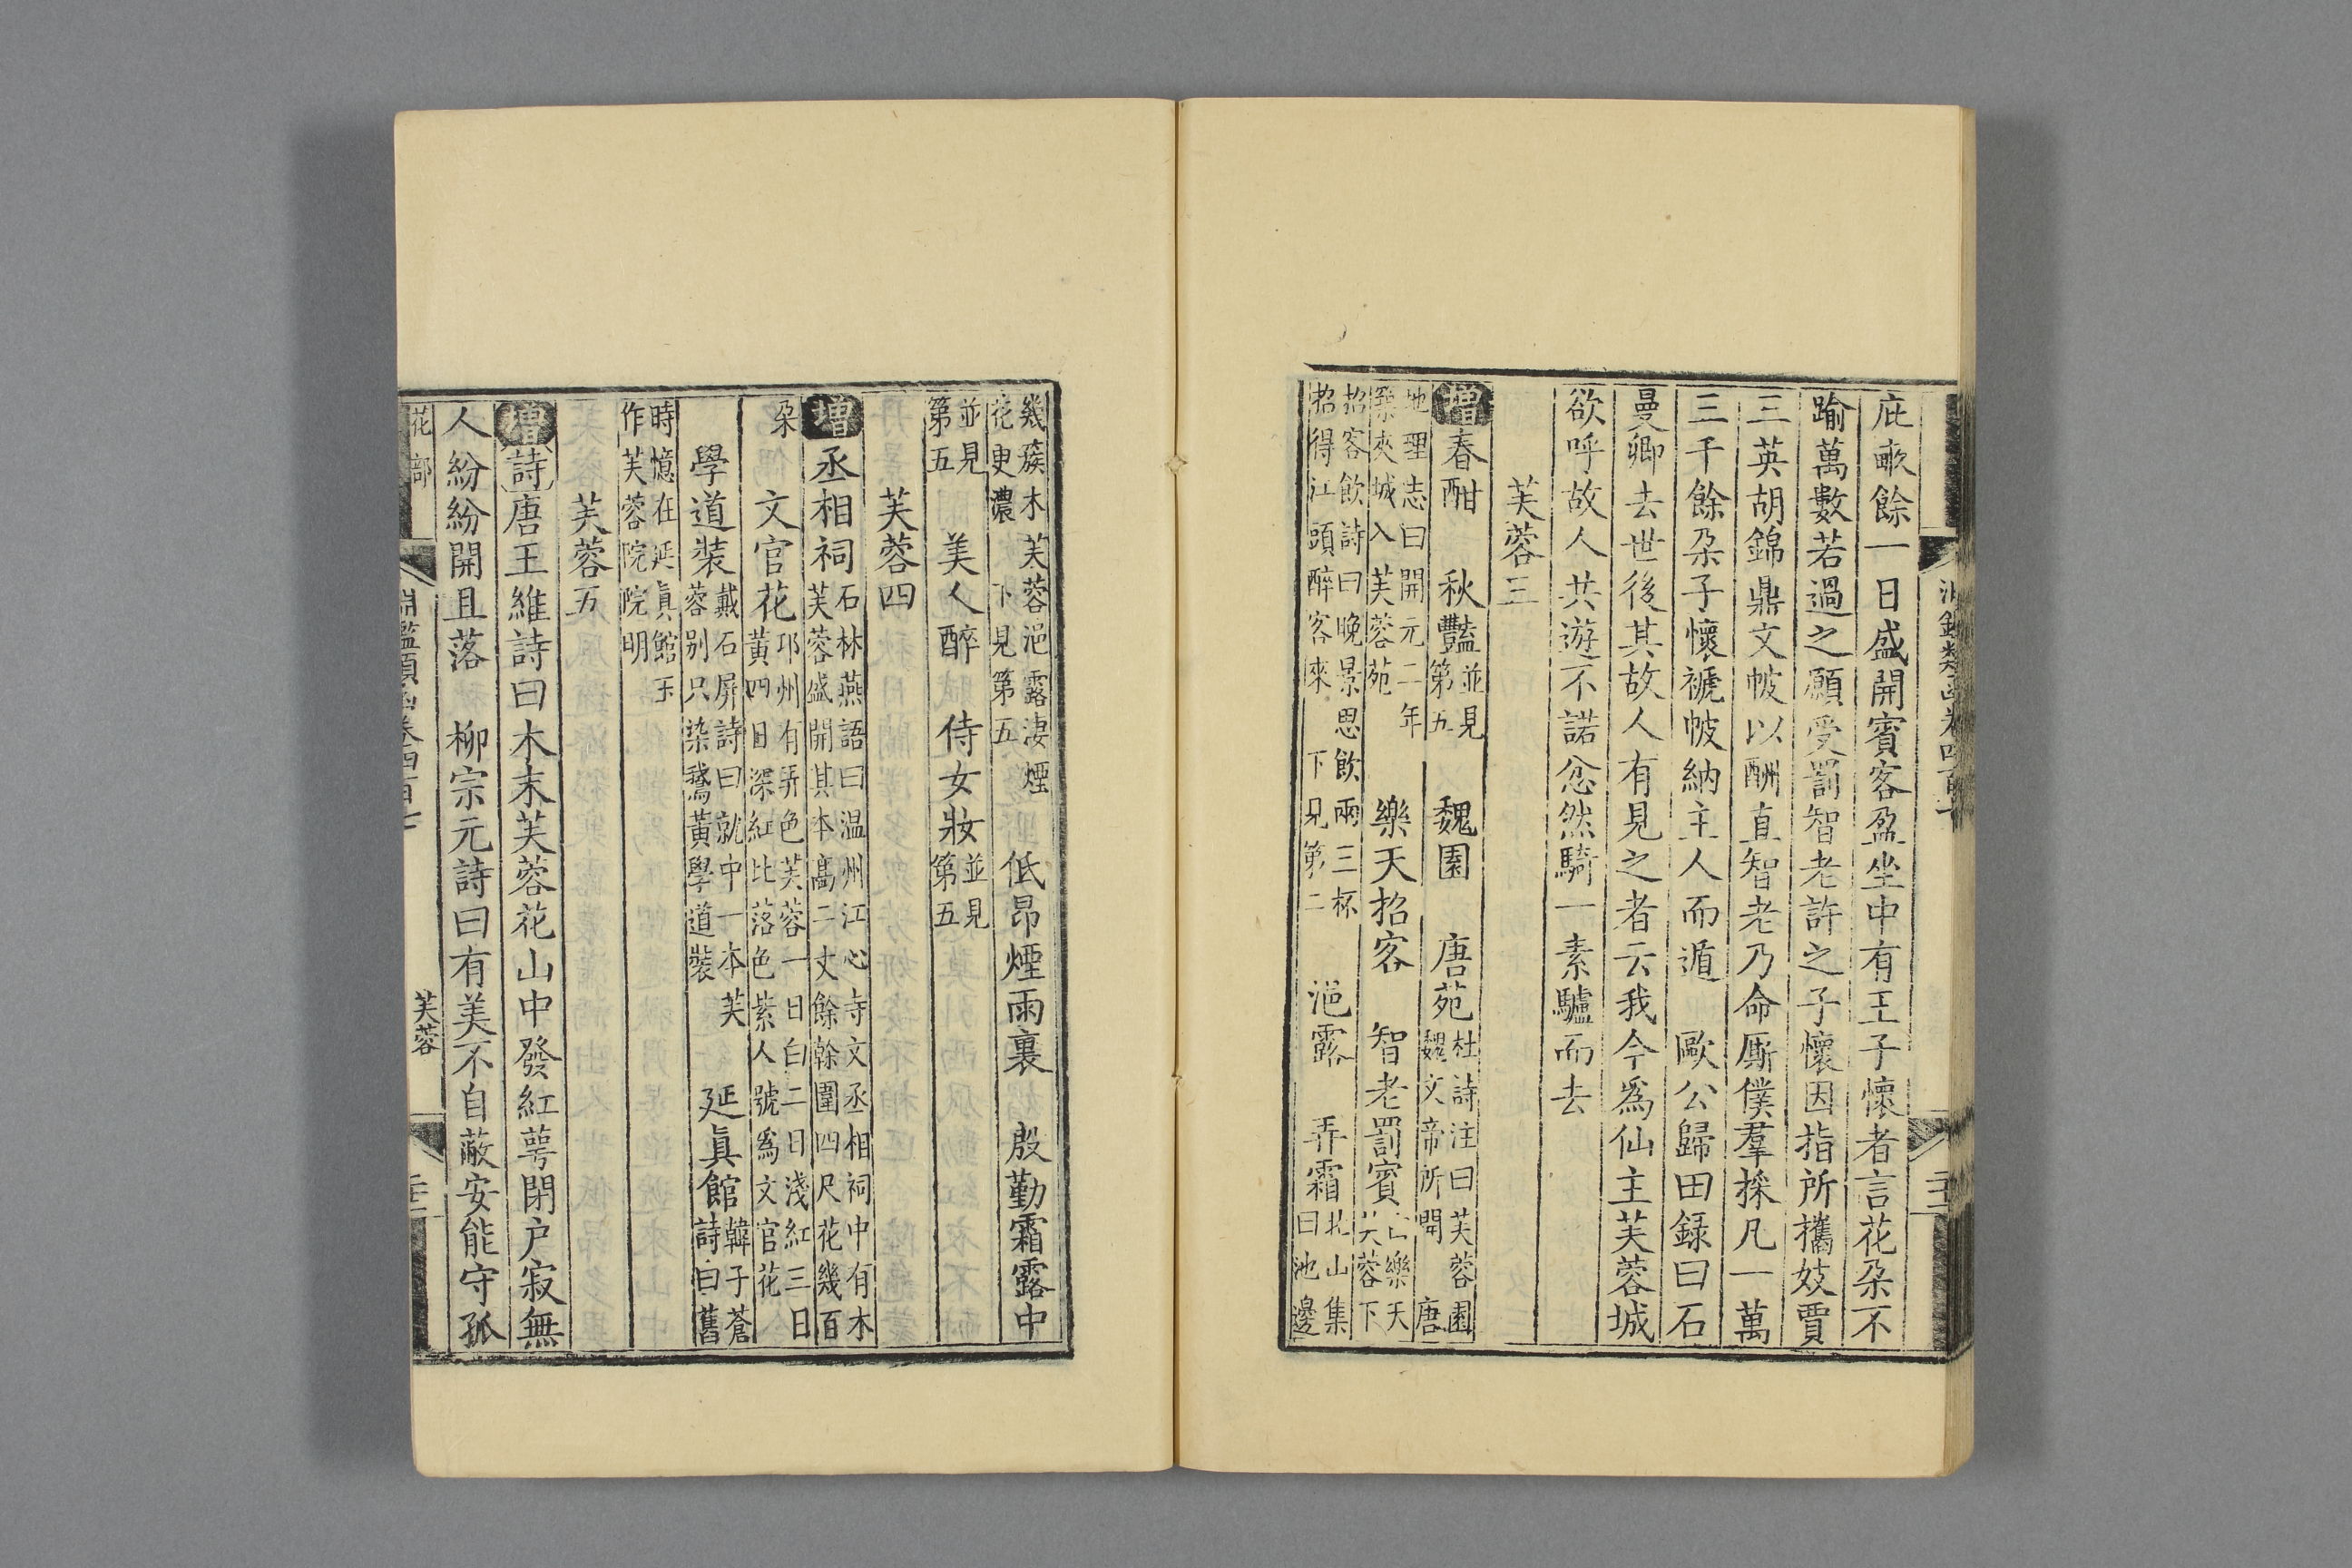 庇畝餘一日盛開賓客盈坐中有王子懷者言花朶不
踰萬數若過之願受罰智老許之子懷因指所攜妓賈
三英胡錦鼎文帔以酬直智老乃命厮僕羣採凡一萬
三千餘朶子懷褫帔納主人而遁 歐公歸田録曰石
曼卿去世後其故人有見之者云我今爲仙主芙蓉城
欲呼故人共遊不諾忿然騎一素驢而去
芙蓉三
增春酣 秋豔並見第五 魏園 唐苑杜詩注曰芙蓉園魏文帝所開 唐
地理志曰開元二年築夾城入芙蓉苑 樂天招客 智老罰賓白樂天芙蓉下
招客飲詩曰晚景思飲兩三杯招得江頭醉客來 下見第二 浥露 弄霜北山集曰池邊
幾蔟木芙蓉浥露凄煙花更濃 下見第五 低昂煙雨裏 殷勤霜露中
並見第五 美人醉 侍女妝並見第五
芙蓉四
增丞相祠石林燕語曰温州江心寺文丞相祠中有木芙蓉盛開其本高二丈餘幹圍四尺花幾百
朶 文官花邛州有弄色芙蓉一日白二日淺紅三日黄四日深紅比落色紫人號爲文官花
學道裝戴石屏詩曰就中一本芙蓉别只染鵞黃學道裝 延眞館韓子蒼詩曰舊
時憶在延眞館玉作芙蓉院院明
芙蓉五
增詩唐王維詩曰木末芙蓉花山中發紅萼閉户寂無
人紛紛開且落 柳宗元詩曰有美不自蔽安能守孤
花部 淵鑑類函卷四百七 芙蓉